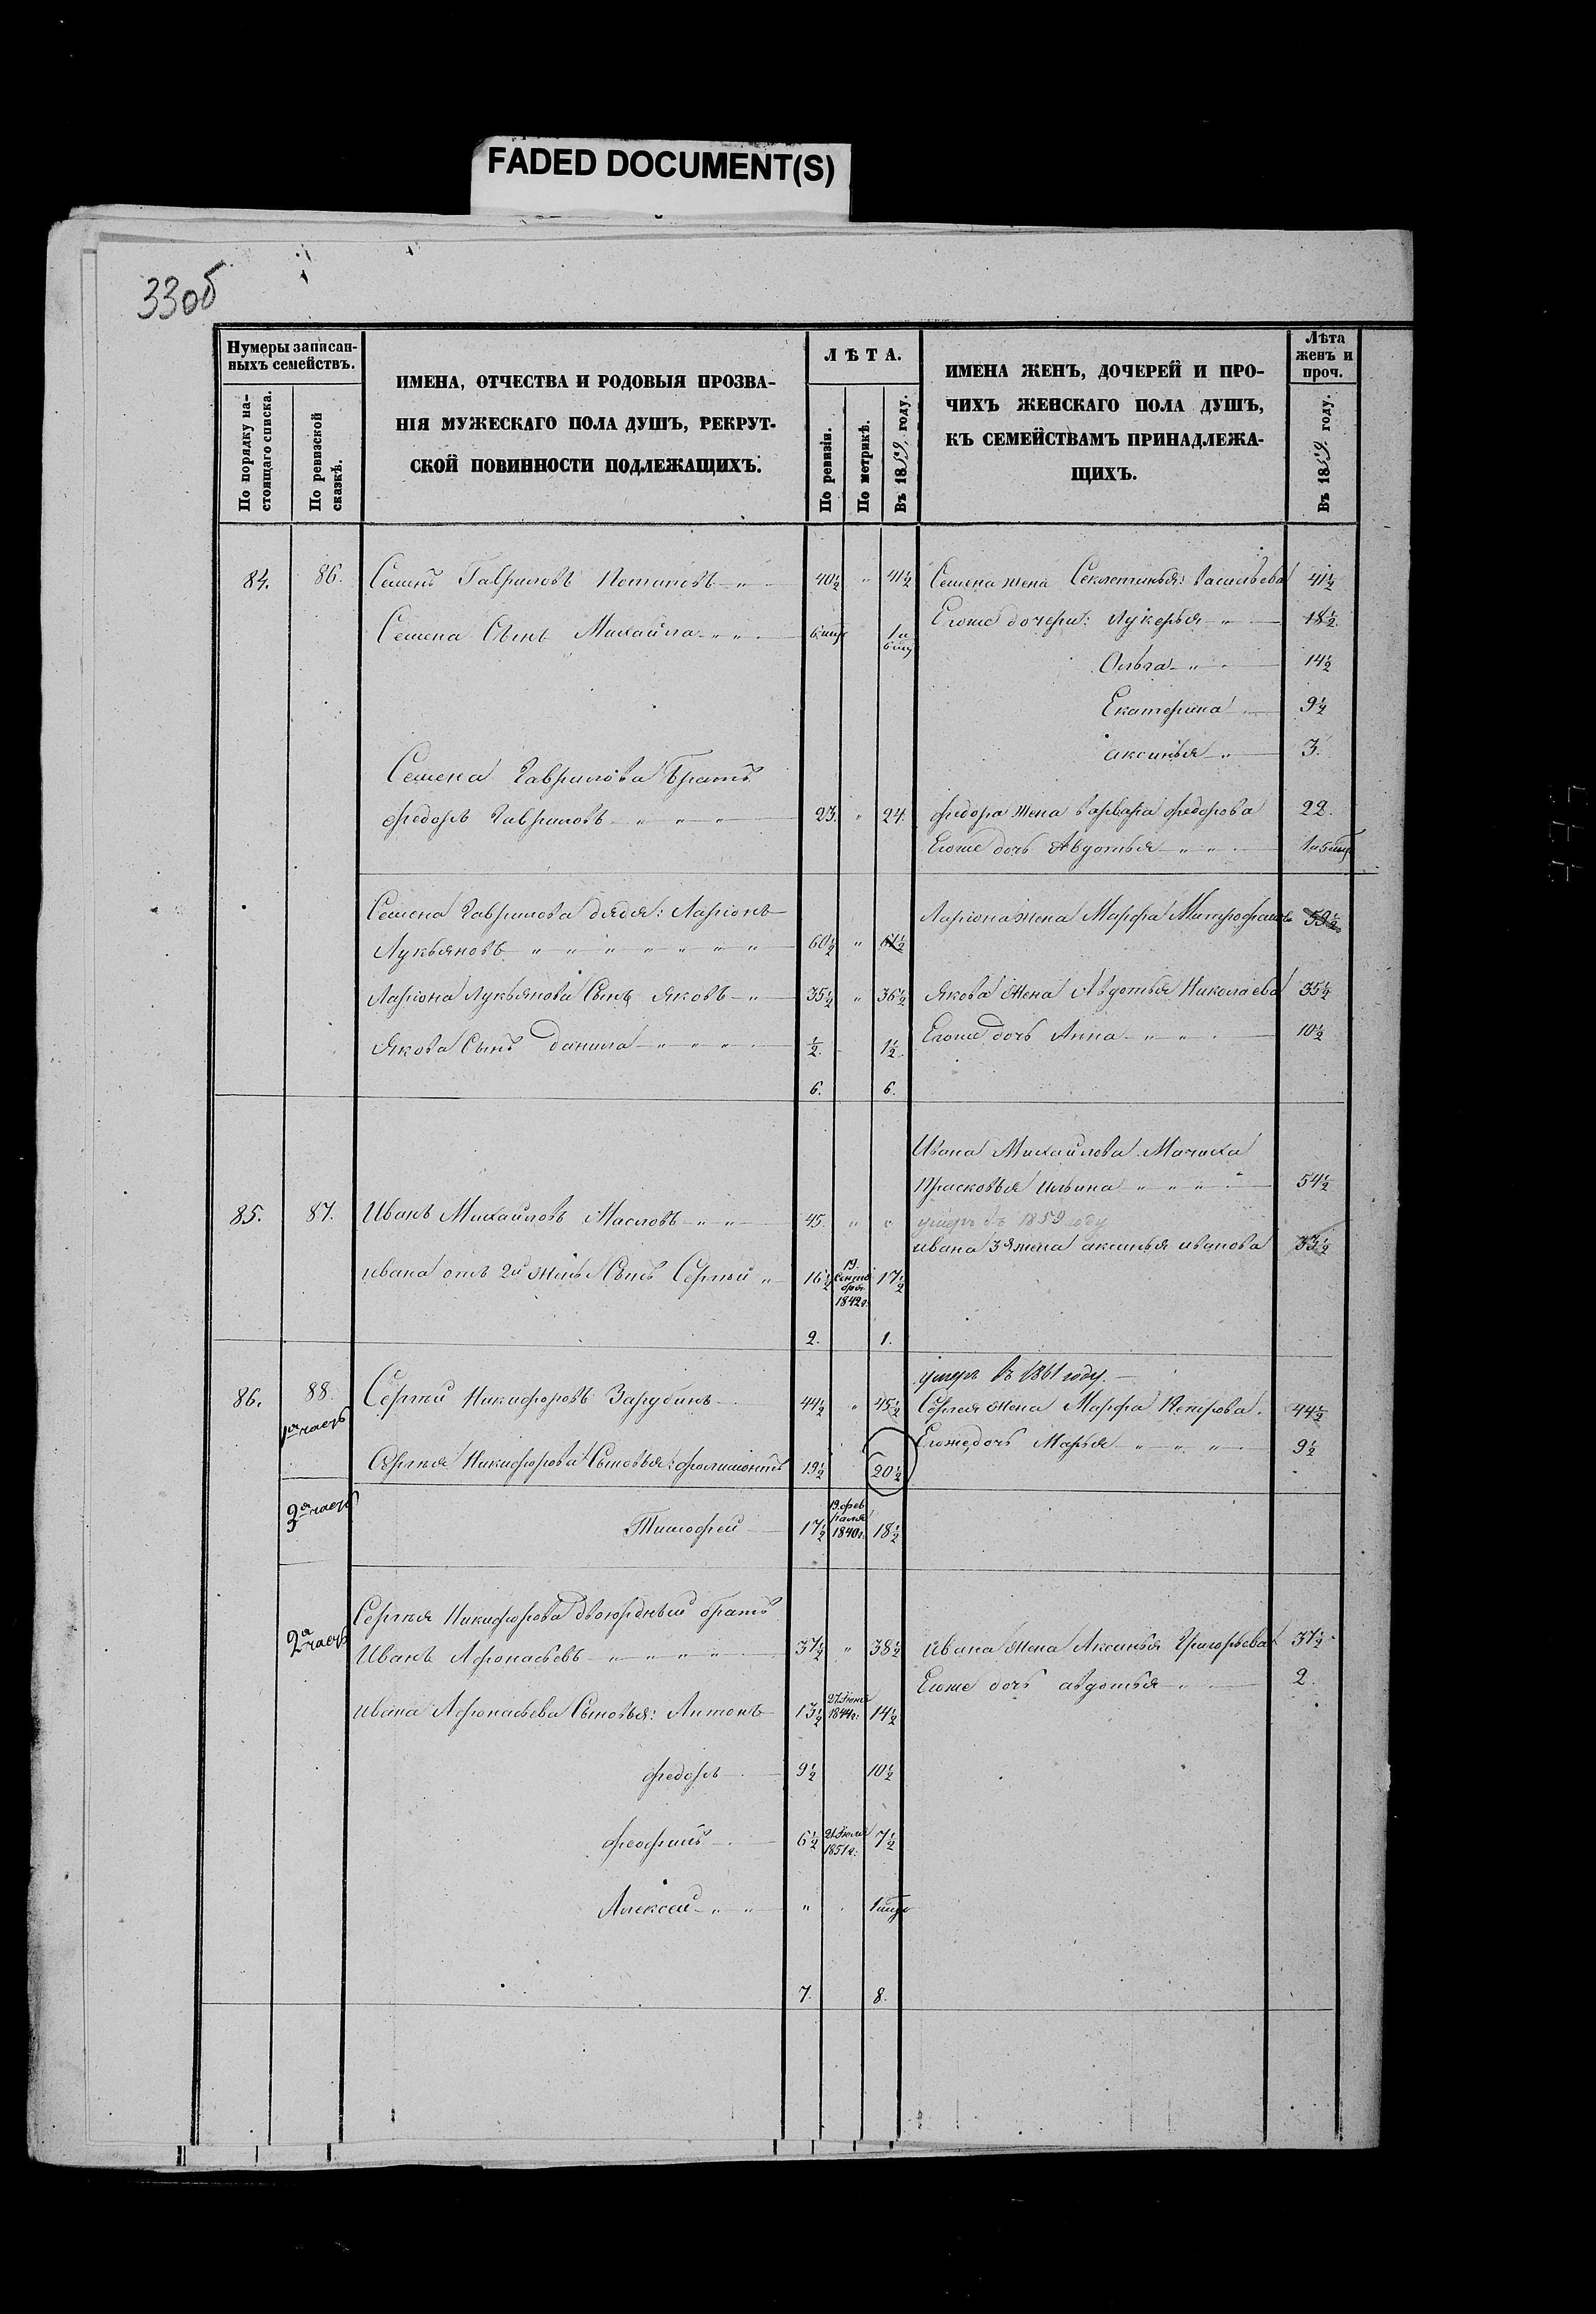 FADED DOCUMENT(S)
33об
Нумеры записан-
ныхъ семействъ.
По порядку на-
стоящаго списка.
По ревизской
сказкѣ.
ИМЕНА, ОТЧЕСТВА И РОДОВЫЯ ПРОЗВА-
НІЯ МУЖЕСКАГО ПОЛА ДУШЪ, РЕКРУТ-
СКОЙ ПОВИННОСТИ ПОДЛЕЖАЩИХЪ.
ЛѢТА.
По ревизіи.
По метрикѣ.
Въ 1859 году.
ИМЕНА ЖЕНЪ, ДОЧЕРЕЙ И ПРО-
ЧИХЪ ЖЕНСКАГО ПОЛА ДУШЪ,
КЪ СЕМЕЙСТВАМЪ ПРИНАДЛЕЖА-
ЩИХЪ.
Лѣта
женъ и
проч.
Въ 1859 году.
84. 86. Семенъ Гавриловъ Потаповъ 40½ " 41½ Семена жена Секлетинья Васильева 41½
Семена Сынъ Михайла 6 мцъ 1 и 6 мцъ Егоже дочери: Лукерья 18½
Ольга 14½
Екатерина 9½
аксинья 3.
Семена Гаврилова Братъ
федоръ Гавриловъ 23. " 24. федора жена Варвара федорова 22.
Егоже дочь Авдотья 1 и 5 мцъ
Семена Гаврилова дядя: Ларіонъ
Лукьяновъ 60½ " 61½ Ларіона жена Марфа Митрофанова 59½
Ларіона Лукьянова Сынъ Яковъ 35½ " 36½ Якова жена Авдотья Николаева 35½
Якова Сынъ Данила ½. 1½. Егоже дочь Анна 10½
6. 6.
Ивана Михайлова Мачиха
Прасковья Ильина 54½
85. 87. Иванъ Михайловъ Масловъ 45. " " умеръ въ 1859 году
Ивана 3я жена аксинья иванова 33½
Ивана отъ 2й жены Сынъ Сергѣй 16½ 19. Сентября 1842г. 17½
2. 1.
умеръ въ 1861 году.
86. 88. Сергѣй Никифоровъ Зарубинъ 44½ " 45½ Сергея жена Марфа Петрова. 44½
1я часть
Егоже дочь Марья 9½
Сергѣя Никифорова Сыновья: 19½ 20½
3я часть Тимофей 17½ 19. февраля 1840г. 18½
Сергѣя Никифорова двоюрдный братъ
2я часть Иванъ Афонасьевъ 37½ " 38½ Ивана жена Аксинья Григорьева 37½
Егоже дочь авдотья 2.
Ивана Афонасьева Сыновья: Антонъ 13½ 1844г. 14½
федоръ 9½ 10½
6½ 1851г. 7½
Алексей " 1 мцъ
7. 8.